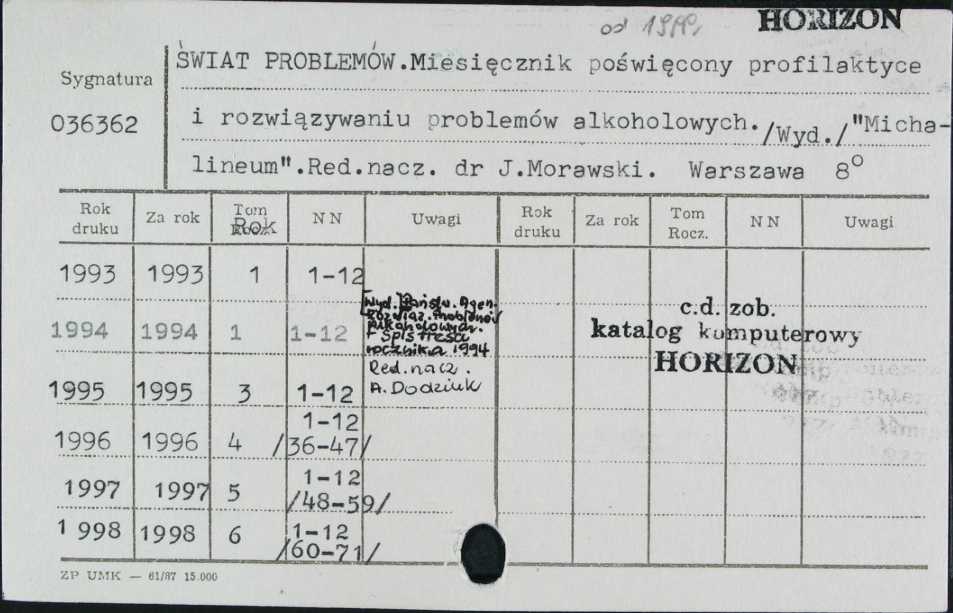 od 1999,
HORIZON
ŚWIAT PROBLEMÓW.Miesięcznik poświęcony profilaktyce
Sygnatura
036362
i rozwiązywaniu problemów alkoholowych./Wyd./"Micha-
lineum".Red.nacz. dr J.Morawski. Warszawa 8°
Rok druku Za rok Tom Rok NN Uwagi Rok druku Za rok Tom Rocz. NN Uwagi
1993 1993 1 1-12
Wyd. Państw. Agen.
Rozwiąz. Problemów
Alkoholowych.
+ Spis treści
rocznika 1994
1994 1994 1 1-12
c.d. zob.
katalog komputerowy
HORIZON
Red.nacz.
A. Dodziuk
1995 1995 3 1-12
1996 1996 4 1-12
/36-47/
1997 1997 5 1-12
/48-59/
1998 1998 6 1-12
/60-71/
ZP UMK — 61/87 15.000